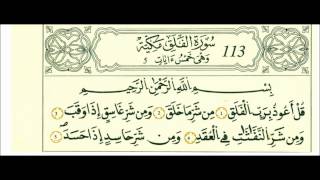 سُورَةُ الْفَلَقِ مَكِّيَّةٌ 113
وَهِيَ خَمْسُ ءَايَاتٍ
بِسْمِ اللَّهِ الرَّحْمَٰنِ الرَّحِيمِ
قُلْ أَعُوذُ بِرَبِّ الْفَلَقِ مِن شَرِّ مَا خَلَقَ وَمِن شَرِّ غَاسِقٍ إِذَا وَقَبَ
وَمِن شَرِّ النَّفَّٰثَٰتِ فِي الْعُقَدِ وَمِن شَرِّ حَاسِدٍ إِذَا حَسَدَ